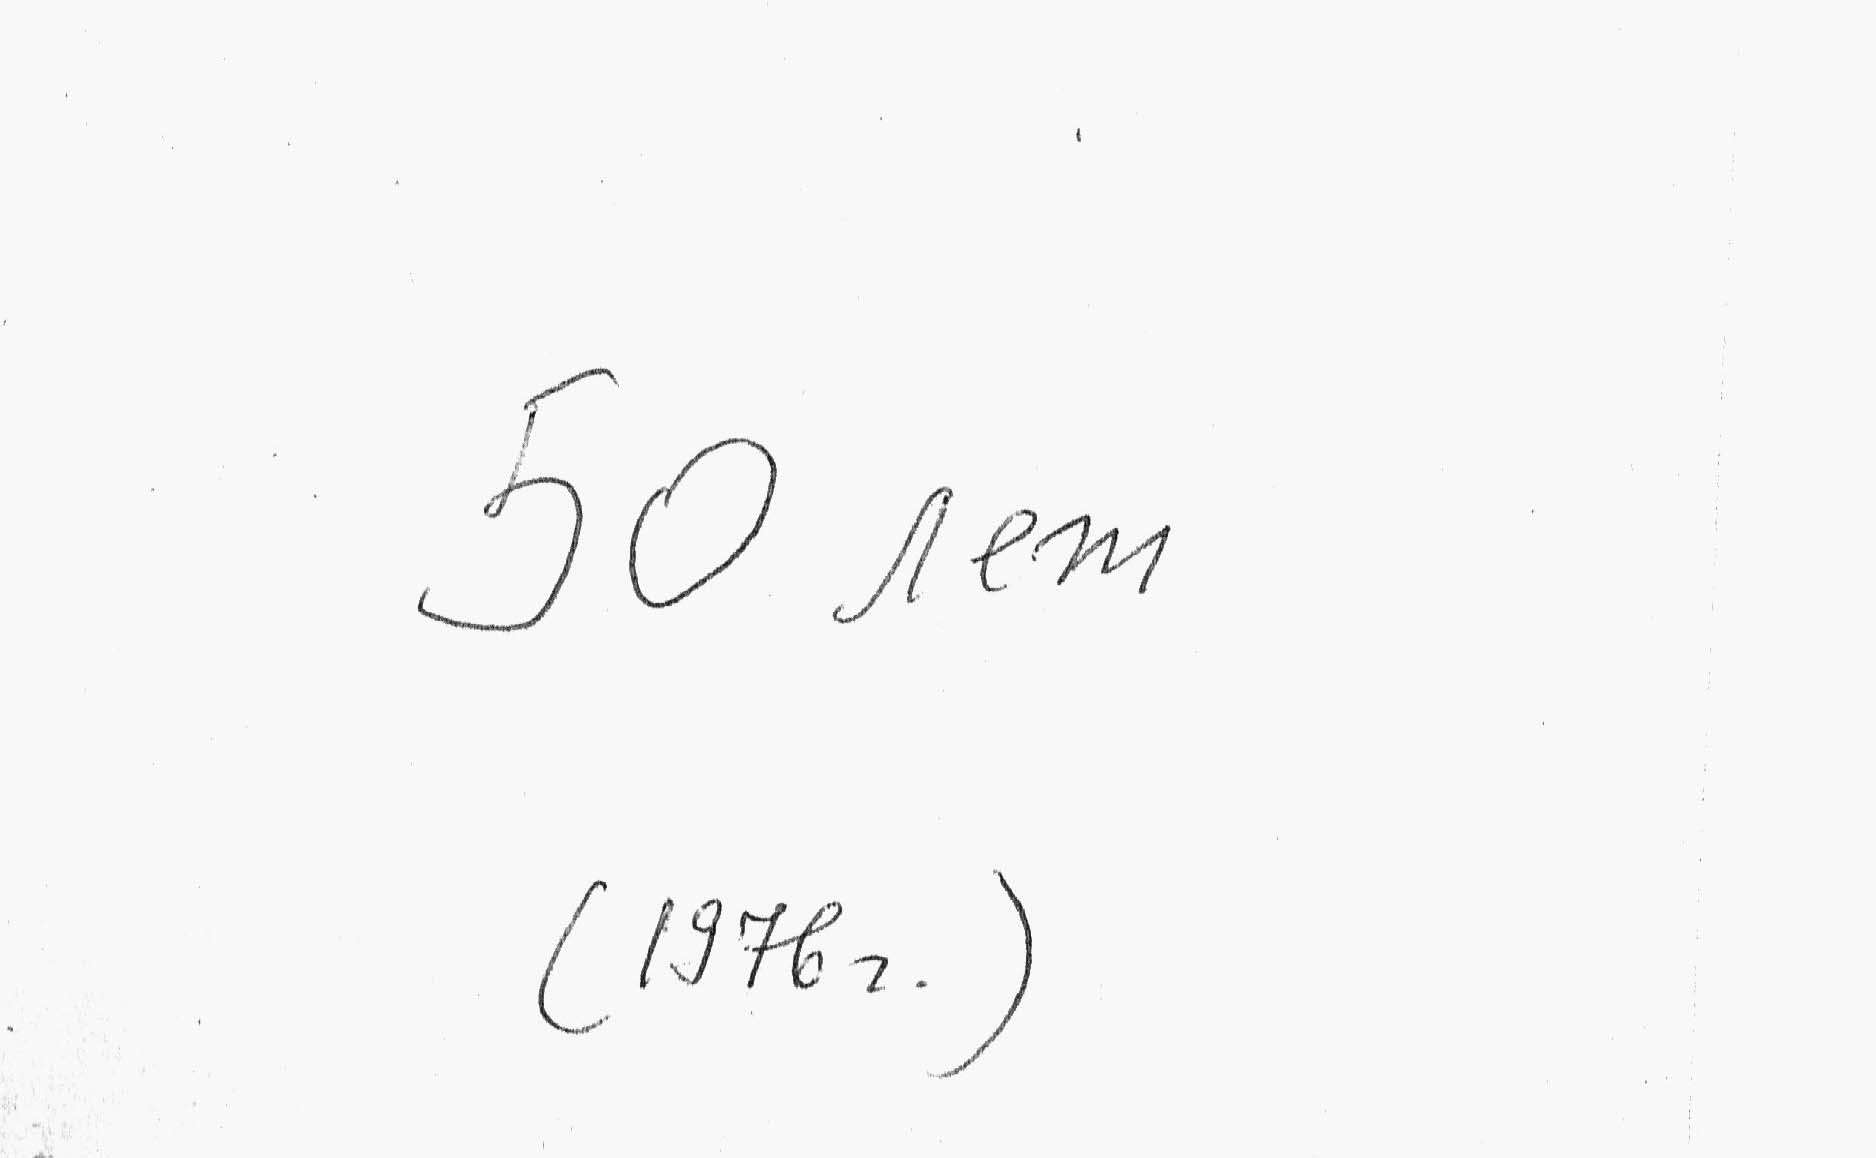 50 лет
(1976г.)